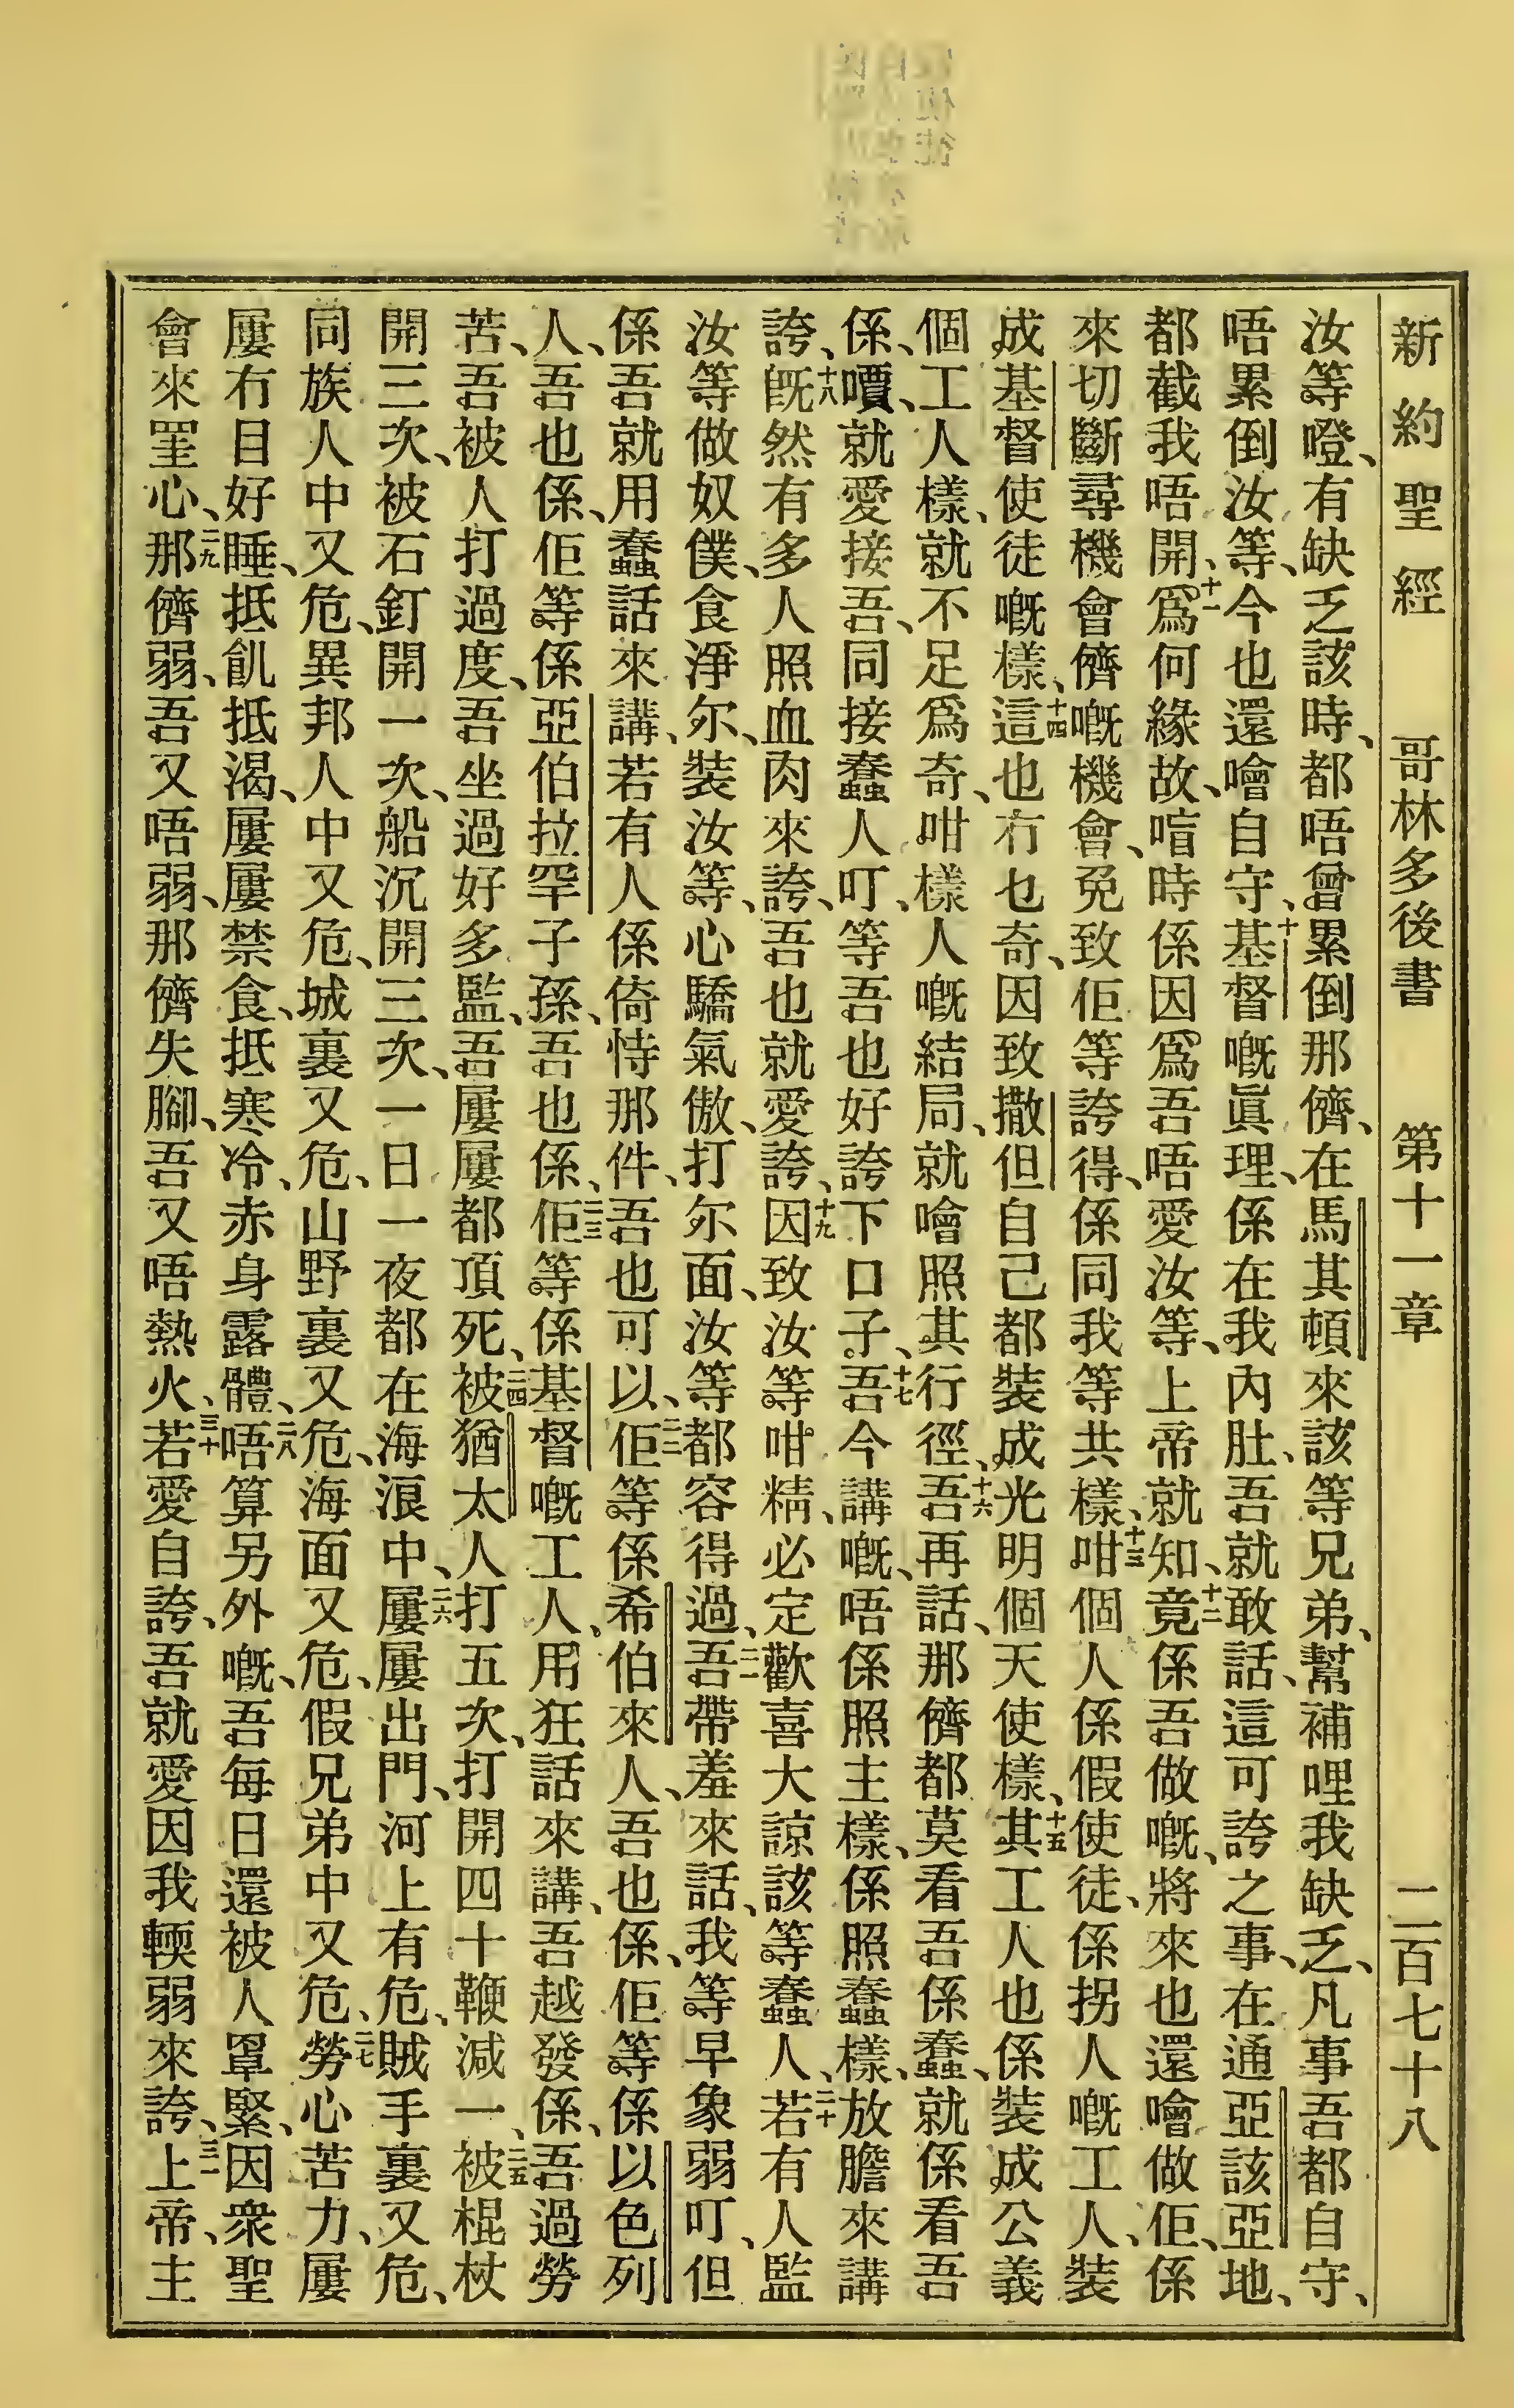 新約聖經 哥林多後書 第十一章 二百七十八
汝等噔、有缺乏該時、都唔曾累倒那儕、在馬其頓來該等兄弟、幫補哩我缺乏、凡事吾都自守、
唔累倒汝等、今也還噲自守、十基督嘅眞理、係在我內肚、吾就敢話、這可誇之事、在通亞該亞地、
都截我唔開、十一爲何緣故、喑時係因爲吾唔愛汝等、上帝就知、十二竟係吾做嘅、將來也還噲做佢、係
來切斷尋機會儕嘅機會、免致佢等誇得、係同我等共樣、十三咁個人係假使徒、係拐人嘅工人、裝
成基督使徒嘅樣、十四這也冇乜奇、因致撒但自己都裝成光明個天使樣、十五其工人也係裝成公義
個工人樣、就不足爲奇、咁樣人嘅結局、就噲照其行徑、十六吾再話、那儕都莫看吾係蠢、就係看吾
係、嘪就愛接吾、同接蠢人叮、等吾也好誇下口子、十七吾今講嘅、唔係照主樣、係照蠢樣、放膽來講
誇、十八既然有多人照血肉來誇、吾也就愛誇、十九因致汝等咁精、必定歡喜大諒該等蠢人、二十若有人監
汝等做奴僕、食淨尔、裝汝等、心驕氣傲、打尔面、汝等都容得過、二一吾帶羞來話、我等早象弱叮、但
係吾就用蠢話來講、若有人係倚恃那件、吾也可以、二二佢等係希伯來人、吾也係、佢等係以色列
人、吾也係、佢等係亞伯拉罕子孫、吾也係、二三佢等係基督嘅工人、用狂話來講、吾越發係、吾過勞
苦、吾被人打過度、吾坐過好多監、吾屢屢都頂死、二四被猶太人打五次、打開四十鞭減一、二五被棍杖
開三次、被石釘開一次、船沉開三次、一日一夜都在海浪中、二六屢屢出門、河上有危、賊手裏又危、
同族人中又危、異邦人中又危、城裏又危、山野裏又危、海面又危、假兄弟中又危、二七勞心苦力、屢
屢冇目好睡、抵飢抵渴、屢屢禁食、抵寒冷、赤身露體、二八唔算另外嘅、吾每日還被人罩緊、因衆聖
會來罣心、二九那儕弱、吾又唔弱、那儕失腳、吾又唔熱火、三十若愛自誇、吾就愛因我輭弱來誇、三一上帝、主